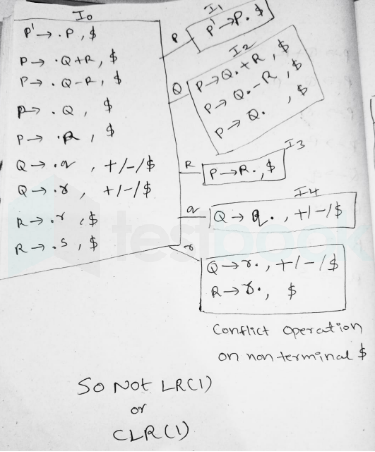 I0
P' → .P, $
P → .Q+R, $
P → .Q-R, $
P → .Q, $
P → .R, $
Q → .q, +/-/$
Q → .r, +/-/$
R → .r, $
R → .s, $
P
I1
P' → P. $
Q
I2
P → Q.+R, $
P → Q.-R, $
P → Q. , $
R
I3
P → R., $
q
I4
Q → q. , +/-/$
r
Q → r., +/-/$
R → r., $
Conflict Operation
on non terminal $
SO NOT LR(1)
or
CLR(1)